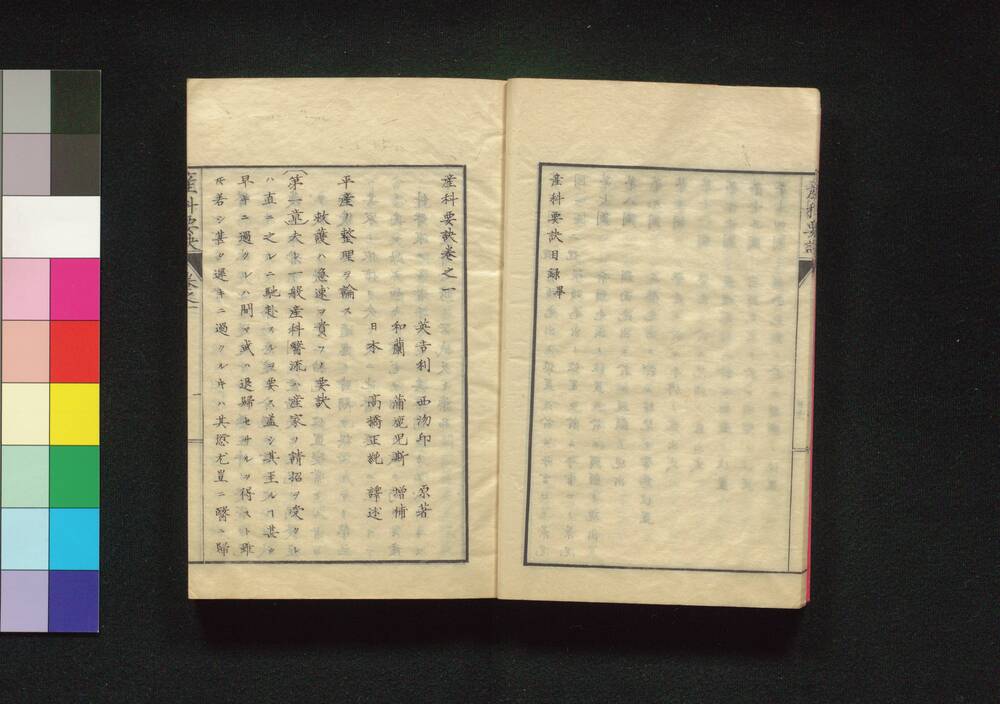 産科要訣目録畢
産科要訣卷之一
英吉利 西物印 原著
和蘭 蒲鹿児斯 増補
日本 高橋正純 譯述
平産ノ整理ヲ論ス
救護ハ急速ヲ貴フノ要訣
第一章 大凡ソ一般産科醫流ハ産家ヲ請招ヲ受クレ
ハ直ニ之ルニ馳赴スルヲ要ス蓋シ其至ルヿ甚タ
早キニ過クレハ間マ或ハ退歸セサルヲ得スト雖
𪜈若シ甚タ遅キニ過クルキハ其愆尤豈ニ醫ニ歸
産科要訣 卷之一